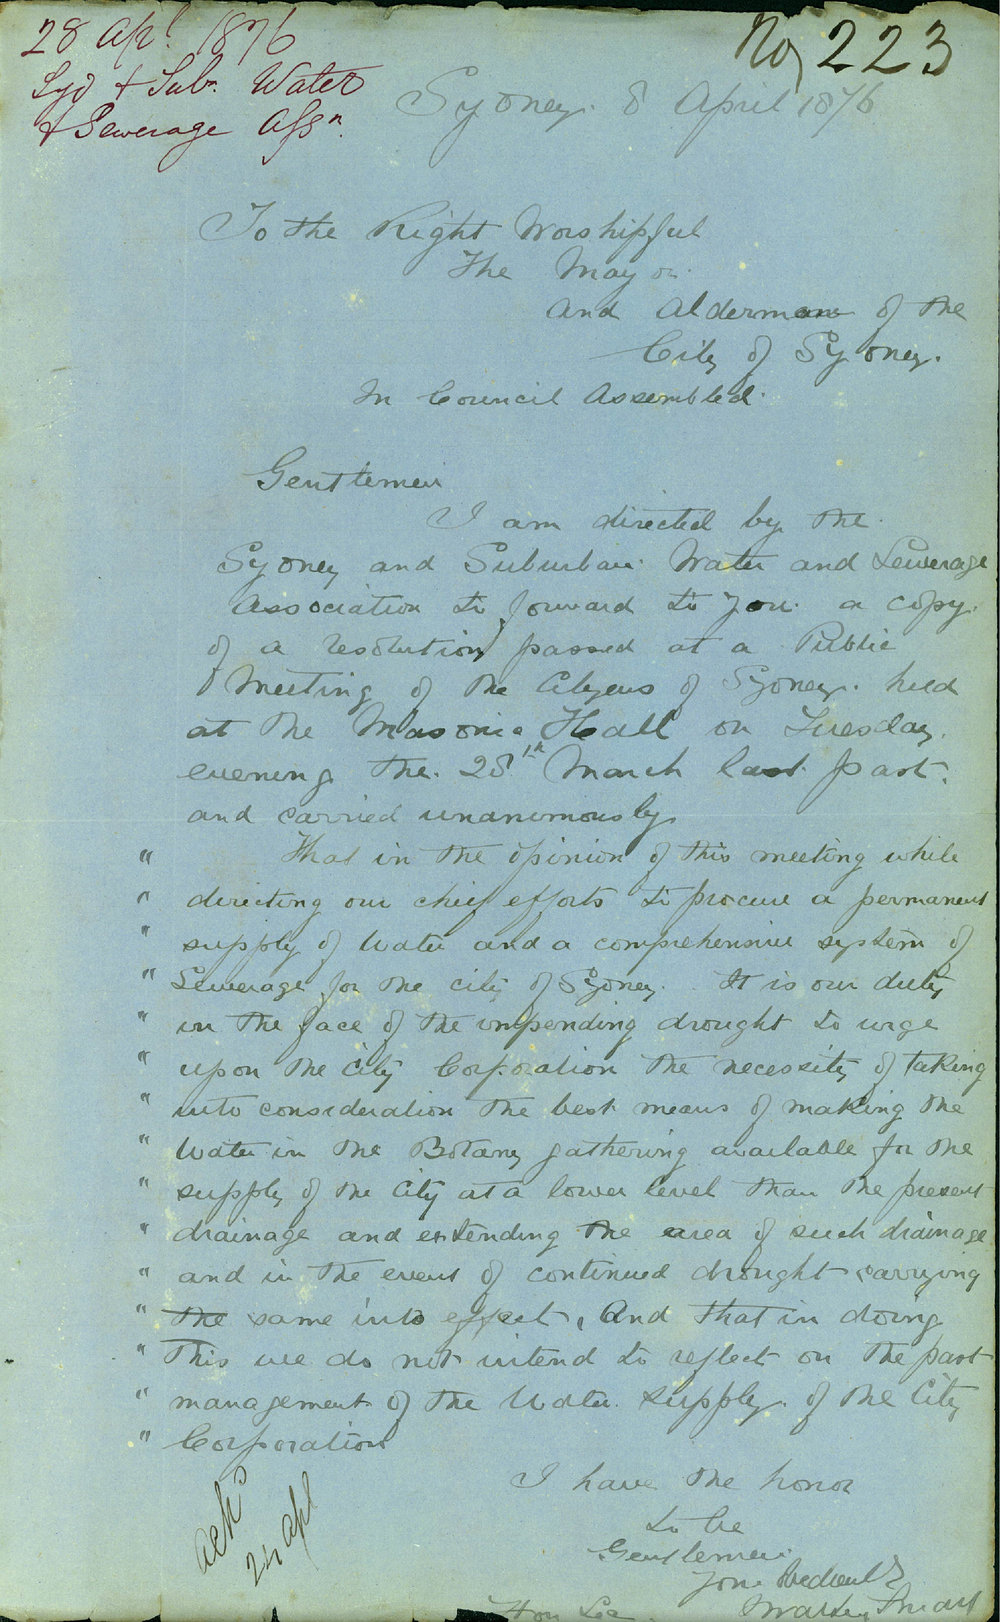 28 Apl. 1876
Syd & Subn. Water
& Sewerage Assn.
No 223
Sydney. 8 April 1876
To the Right Worshipful
The Mayor.
and Aldermen of the
City of Sydney.
In Council Assembled.
Gentlemen
I am directed by the.
Sydney and Suburban Water and Sewerage
Association to forward to you. a copy.
of a resolution passed at a Public
Meeting of the Citizens of Sydney. held
at the Masonic Hall on Tuesday.
evening the. 28th March last past.
and carried unanimously.
" That in the opinion of this meeting while
" directing our chief efforts to procure a permanent
" supply of Water and a comprehensive system of
" Sewerage for the city of Sydney. It is our duty
" in the face of the impending drought to urge
" upon the City Corporation the necessity of taking
" into consideration the best means of making the
" Water in the Botany gathering available for the
" supply of the City at a lower level than the present
" drainage and extending the area of such drainage
" and in the event of continued drought carrying
" the same into effect, And that in doing
" this we do not intend to reflect on the past
" management of the Water supply. of the City
" Corporation
I have the honor
to be
Gentlemen
Your Obedient
Hon Sec.
ackd
24 apl